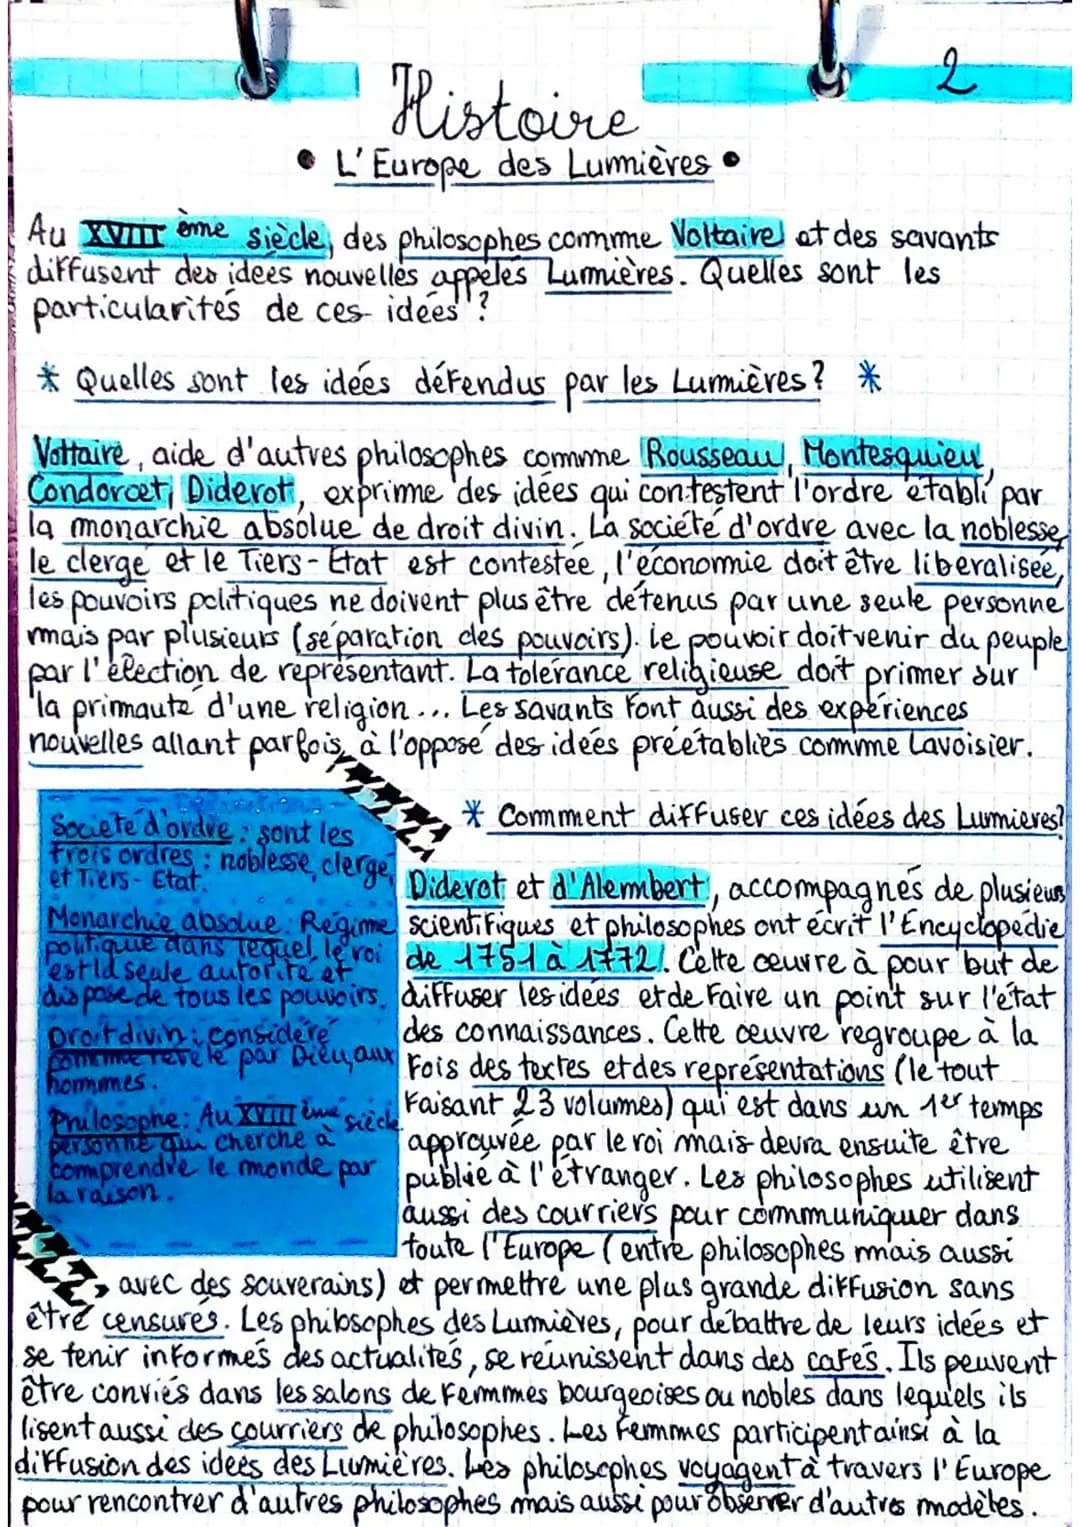 2
Histoire
• L'Europe des Lumières •
Au XVIII ème siècle, des philosophes comme Voltaire et des savants
diffusent des idées nouvelles appelés Lumières. Quelles sont les
particularités de ces idées ?
* Quelles sont les idées défendus par les Lumières ? *
Voltaire, aide d'autres philosophes comme Rousseau, Montesquieu,
Condorcet, Diderot, exprime des idées qui contestent l'ordre établi par
la monarchie absolue de droit divin. La société d'ordre avec la noblesse,
le clergé et le Tiers-Etat est contestée, l'économie doit être libéralisée,
les pouvoirs politiques ne doivent plus être détenus par une seule personne
mais par plusieurs (séparation des pouvoirs). Le pouvoir doit venir du peuple
par l'élection de représentant. La tolérance religieuse doit primer sur
la primauté d'une religion... Les savants font aussi des expériences
nouvelles allant parfois, à l'opposé des idées préétablies comme Lavoisier.
Société d'ordre : sont les
trois ordres : noblesse, clergé,
et Tiers-Etat.
Monarchie absolue : Régime
politique dans lequel le roi
est la seule autorité et
dispose de tous les pouvoirs.
Droit divin : considéré
comme révélé par Dieu, aux
hommes.
Philosophe : Au XVIII ème siècle
personne qui cherche à
comprendre le monde par
la raison.
* Comment diffuser ces idées des Lumières ?
Diderot et d'Alembert, accompagnés de plusieurs
scientifiques et philosophes ont écrit l'Encyclopédie
de 1751 à 1772. Cette œuvre à pour but de
diffuser les idées et de faire un point sur l'état
des connaissances. Cette œuvre regroupe à la
fois des textes et des représentations (le tout
faisant 23 volumes) qui est dans un 1er temps
approuvée par le roi mais devra ensuite être
publié à l'étranger. Les philosophes utilisent
aussi des courriers pour communiquer dans
toute l'Europe (entre philosophes mais aussi
avec des souverains) et permettre une plus grande diffusion sans
être censurés. Les philosophes des Lumières, pour débattre de leurs idées et
se tenir informés des actualités, se réunissent dans des cafés. Ils peuvent
être conviés dans les salons de femmes bourgeoises ou nobles dans lequels ils
lisent aussi des courriers de philosophes. Les femmes participent ainsi à la
diffusion des idées des Lumières. Les philosophes voyagent à travers l'Europe
pour rencontrer d'autres philosophes mais aussi pour observer d'autres modèles.